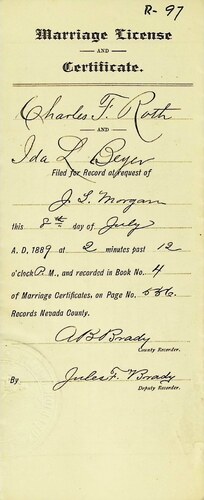 R-97
Marriage License
AND
Certificate.
Charles F. Roth
AND
Ida L Beyer
Filed for Record at request of
J. S. Morgan
this 8th day of July
A. D. 1889 at 2 minutes past 12
o'clock P. M., and recorded in Book No. 4
of Marriage Certificates, on Page No. 536.
Records Nevada County.
A B Brady
County Recorder.
By Jules F. Brady
Deputy Recorder.